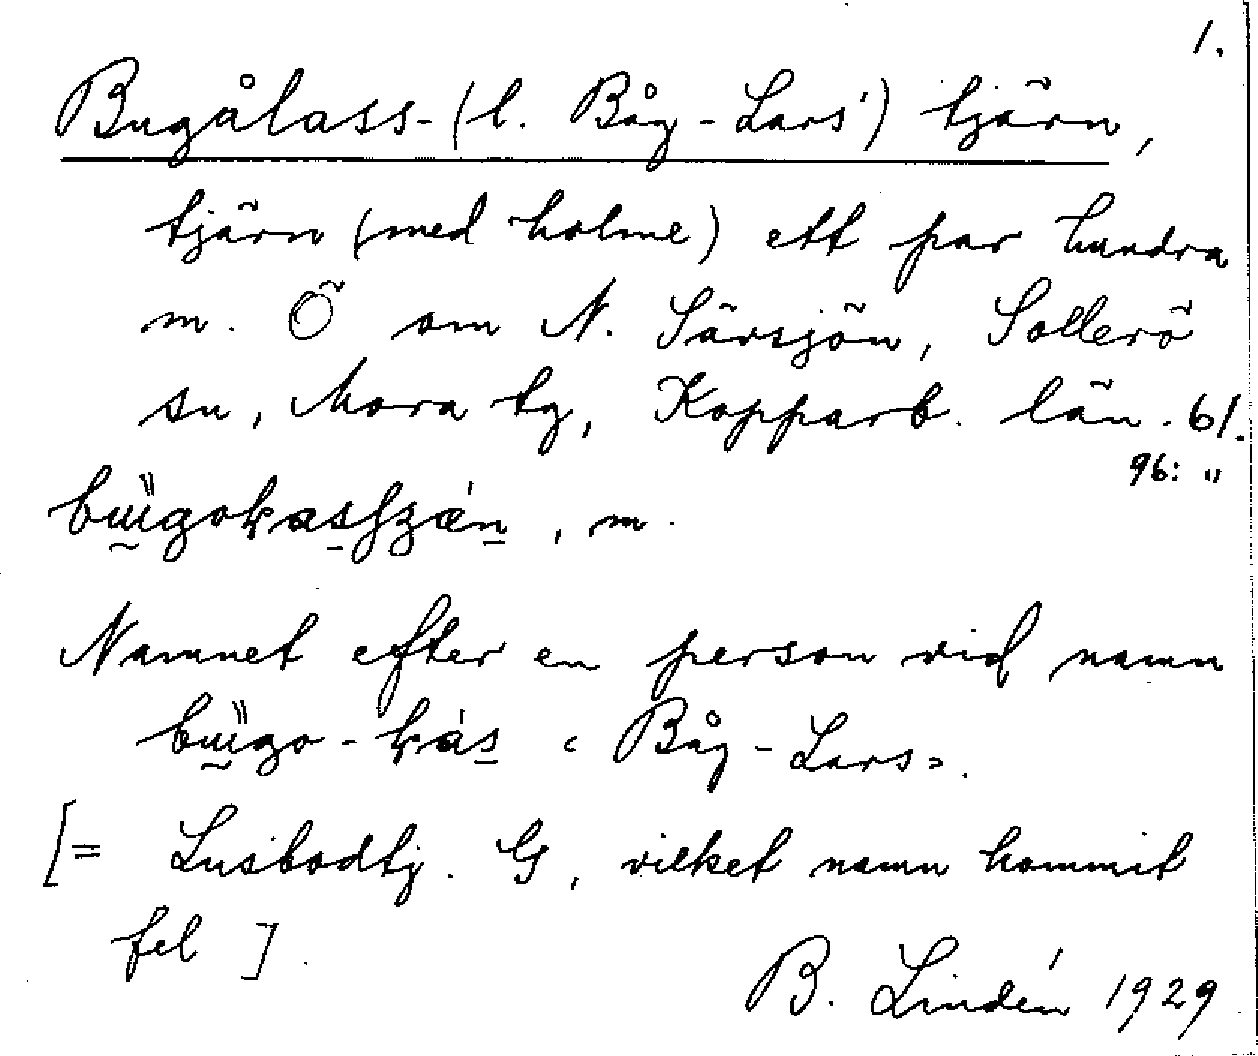 1.
Bugålass- (l. Båg-Lars') tjärn,
tjärn (med holme) ett par hundra
m. Ö om N. Särsjön, Sollerö
sn, Mora tg, Kopparb. län. 61.
96: "
, m.
Namnet efter en person vid namn
‹ Båg-Lars›.
[= Lusbodtj. G, vilket namn kommit
fel ].
B. Lindén 1929